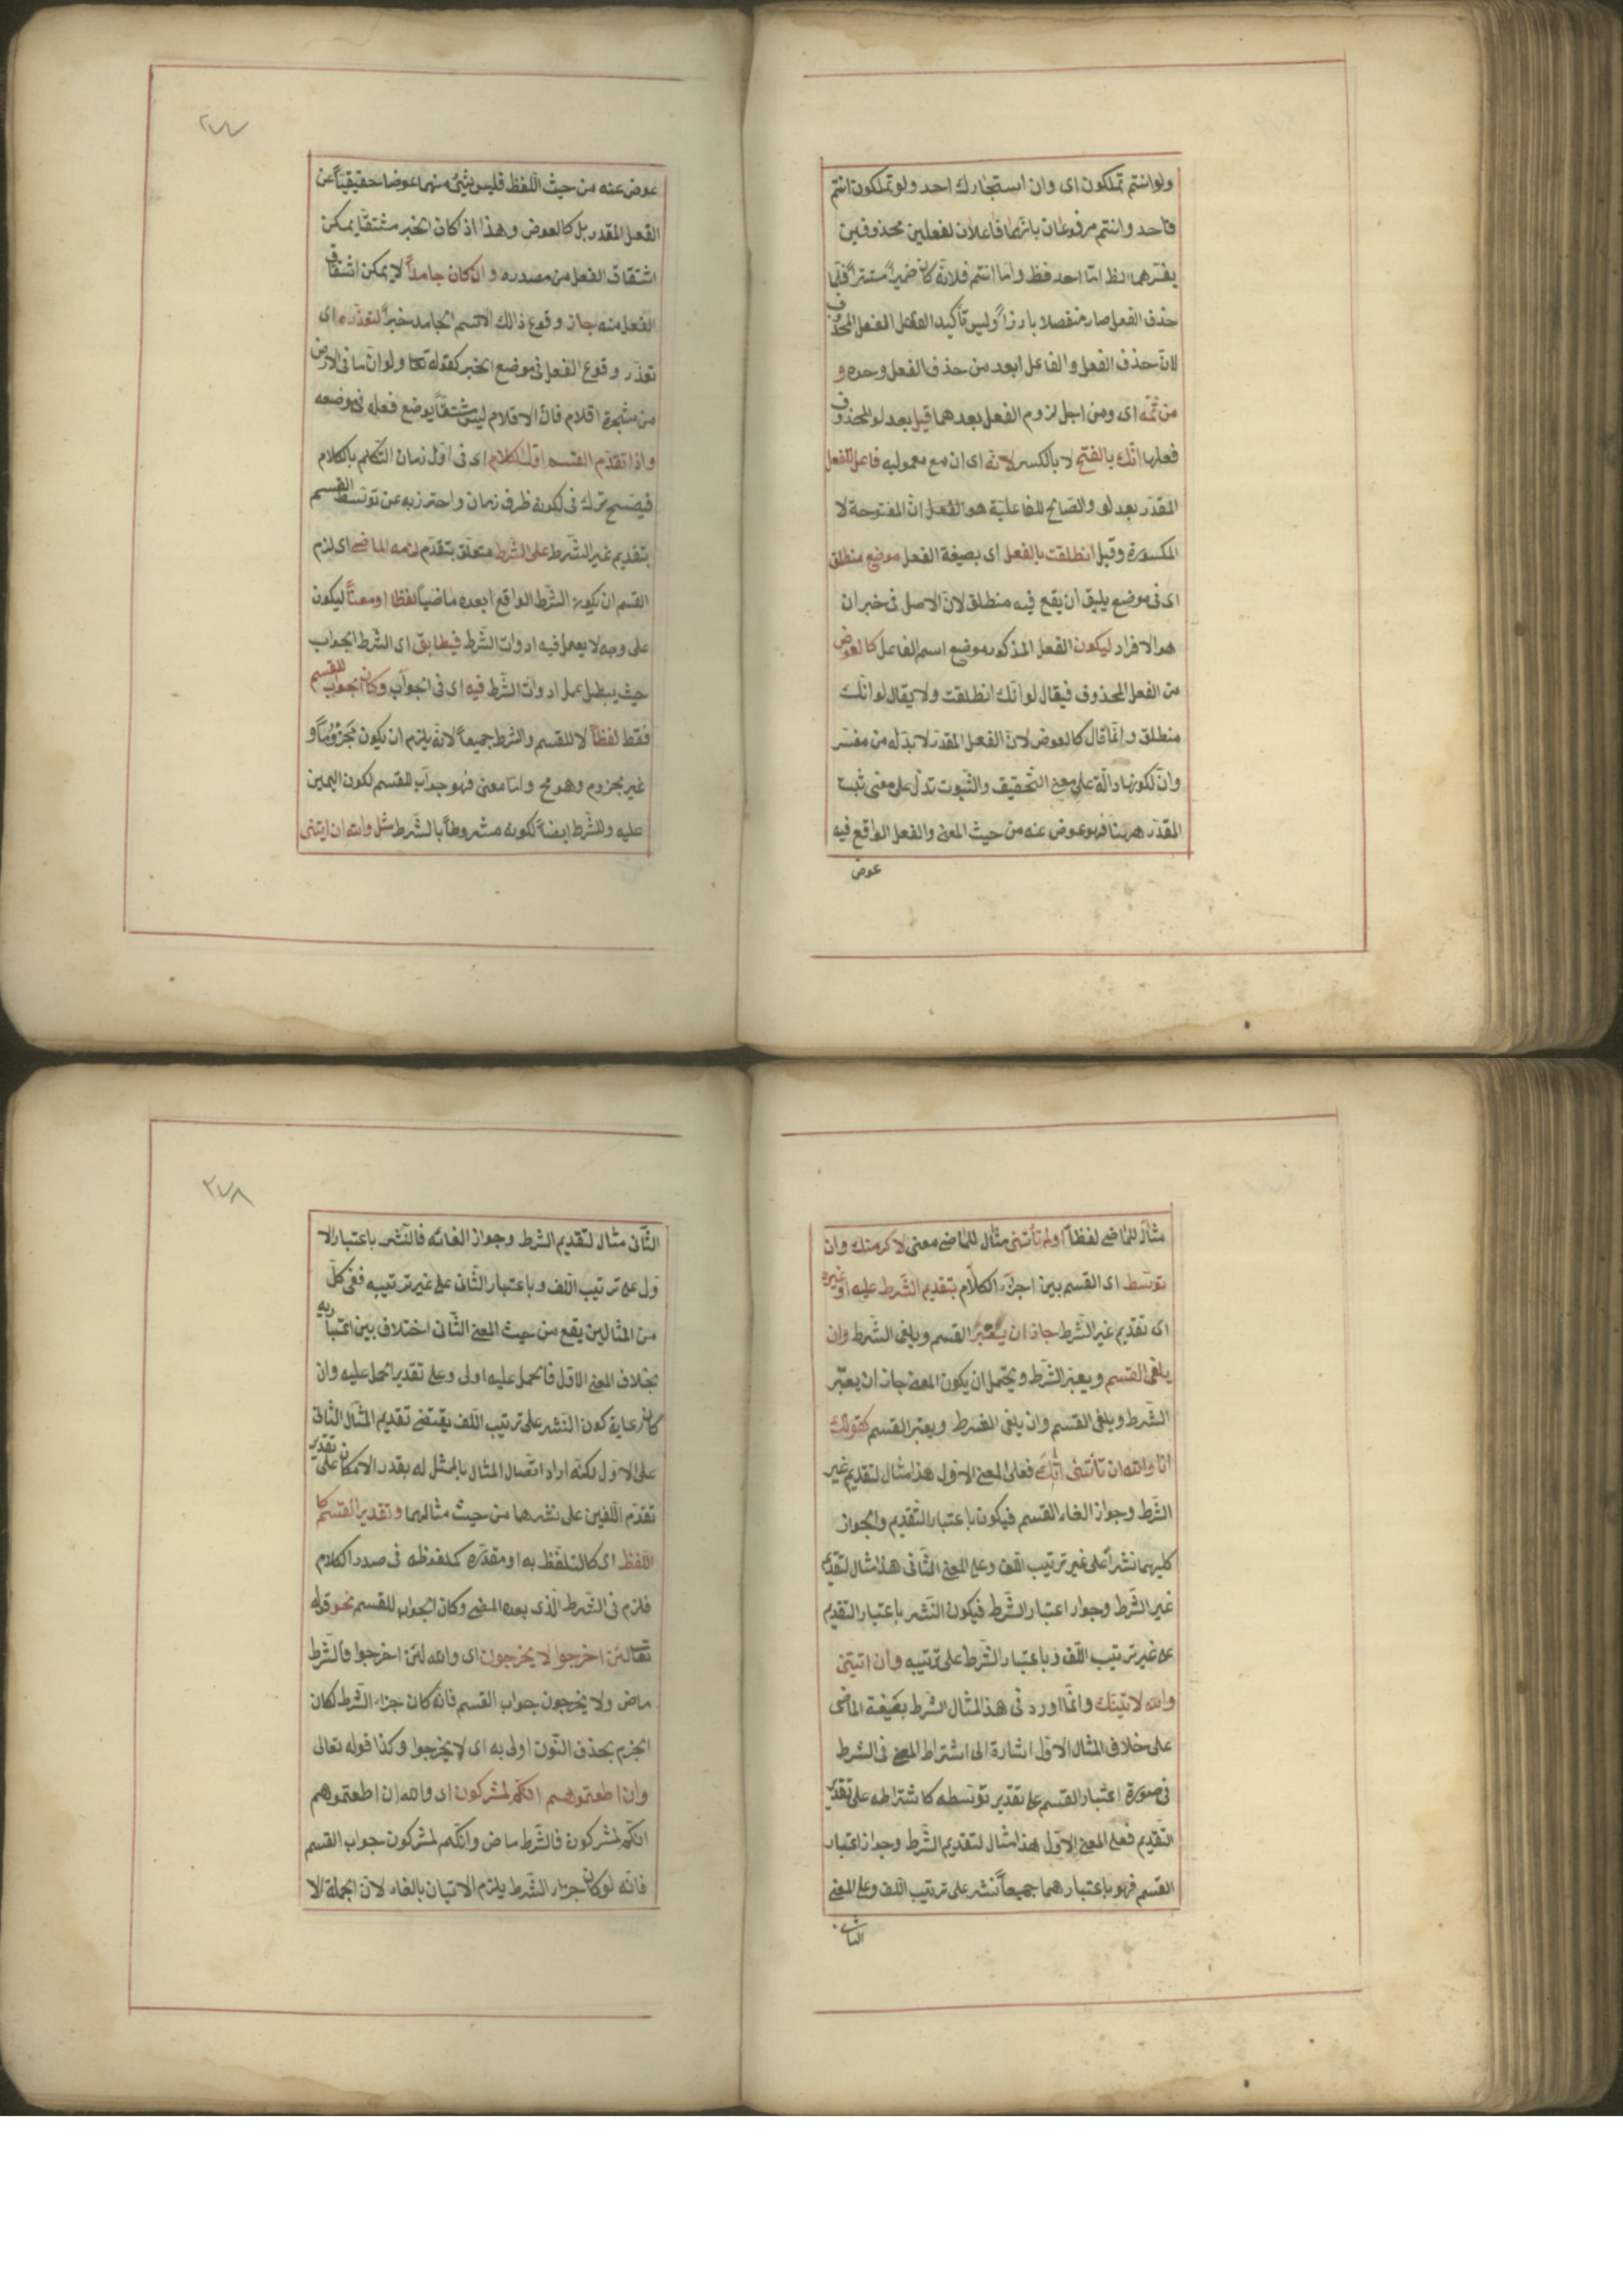 ولو انتم تملكون اى وان استجارك احد ولو تملكون انتم
فاحد وانتم مرفوعان بانهما فاعلان لفعلين محذوفين
يفسرهما الظ امّا احد فظ وامّا انتم فلانّه كان ضميراً مستتراً فلمّا
حذف الفعل صار منفصلا بارزاً وليس تأكيد الفاعل الفعل المحذوف
لانّ حذف الفعل والفاعل ابعد من حذف الفعل وحده و
من ثمّه اى ومن اجل لزوم الفعل بعدهما قيل بعد لو المحذوف
فعلها انّك بالفتح لا بالكسر لانّه اى ان مع معموليه فاعل للفعل
المقدّر بعد لو والصالح للفاعليّة هو انّ المفتوحة لا
المكسورة وقيل انطلقت بالفعل اى بصيغة الفعل موضع منطلق
اى فى موضع يليق ان يقع فيه منطلق لانّ الاصل فى خبر ان
هو الافراد ليكون الفعل المذكور موضع اسم الفاعل كالعوض
من الفعل المحذوف فيقال لو انّك انطلقت ولا يقال لو انّك
منطلق وانّما قال كالعوض لانّ الفعل المقدّر لا بدّ له من مفسّر
وانّ لكونها دالّة على معنى التّحقيق والثّبوت تدلّ على معنى ثبت
المقدّر ههنا فهو عوض عنه من حيث المعنى والفعل الواقع فيه
عوض
٢٧٧
عوض عنه من حيث اللّفظ فليس شئ منهما عوضا حقيقيّاً عن
الفعل المقدر بل كالعوض وهذا اذ كان الخبر مشتقّا يمكن
اشتقاق الفعل من مصدره وان كان جامداً لا يمكن اشتقاق
الفعل منه جاز وقوع ذالك الاسم الجامد خبراً لتعذّره اى
تعذّر وقوع الفعل فى موضع الخبر كقوله تعا ولو انّ ما فى الارض
من شجرة اقلام فانّ الاقلام ليس مشتقّاً يوضع فعله فى موضعه
واذا تقدّم القسم اوّل الكلام اى فى اوّل زمان التّكلم بالكلام
فيصح ترك فى لكونه ظرف زمان واحترز به عن توسط القسم
بتقديم غير الشّرط على الشّرط متعلّق بتقدّم لزمه الماضى اى لزم
القسم ان يكون الشّرط الواقع بعده ماضياً لفظا او معنىً ليكون
على وجه لا يعمل فيه ادوات الشّرط فيطابق اى الشّرط الجواب
حيث يبطل عمل ادوات الشّرط فيه اى فى الجواب وكان الجواب للقسم
فقط لفظاً لا للقسم والشّرط جميعاً لانّه يلزم ان يكون مجزوماً و
غير مجزوم وهو مح وامّا معنى فهو جواب للقسم لكون اليمين
عليه وللشّرط ايضاً لكونه مشروطاً بالشّرط مثل والله ان اتيتنى
مثال للماضى لفظاً او لم تأتنى مثال للماضى معنى لاكرمتك وان
توسّط اى القسم بين اجزاء الكلام بتقديم الشّرط عليه او غيره
اى تقديم غير الشّرط جاز ان يعتبر القسم ويلغى الشّرط وان
يلغى القسم ويعتبر الشّرط ويحتمل ان يكون المعنى جاز ان يعتبر
الشّرط ويلغى القسم وان يلغى الشرط ويعتبر القسم كقولك
انا والله ان تأتنى اتك فعلى المعنى الاوّل هذا مثال لتقديم غير
الشّرط وجواز الغاء القسم فيكون باعتبار التّقديم والجواز
كليهما نشراً على غير ترتيب اللّف وعلى المعنى الثّانى هذا مثال لتقديم
غير الشّرط وجواز اعتبار الشّرط فيكون النّشر باعتبار التّقديم
على غير ترتيب اللّف وباعتبار الشّرط على ترتيبه وان اتيتنى
والله لاتيتك وانّما اورد فى هذ المثال الشّرط بصيغة الماضى
على خلاف المثال الاوّل اشارة الى اشتراط المضى فى الشرط
فى صورة اعتبار القسم على تقدير توسّطه كاشتراطه على تقدير
التّقديم فعلى المعنى الاوّل هذا مثال لتقديم الشّرط وجواز اعتبار
القسم فهو باعتبارهما جميعاً نشر على ترتيب اللّف وعلى المعنى
الثانى
٢٧٨
الثّانى مثال لتقديم الشرط وجواز الغائه فالنّشر باعتبار الا
وّل على ترتيب اللّف وباعتبار الثّانى على غير ترتيبه ففى كلّ
من المثالين يقع من حيث المعنى الثّانى اختلاف بين اعتباريه
بخلاف المعنى الاوّل فالحمل عليه اولى وعلى تقدير الحمل عليه وان
كان رعاية كون النّشر على ترتيب اللّف يقتضى تقديم المثال الثّانى
على الاوّل لكنّه اراد اتصال المثال بالممثل له بقدر الامكان على تقدير
تقدّم اللّفين على نشرهما من حيث مثالهما وتقدير القسم كا
اللّفظ اى كالتلفّظ به او مقدّره كملفوظه فى صدر الكلام
فلزم فى الشّرط الّذى بعده المضى وكان الجواب للقسم نحو قوله
تعا لئن اخرجوا لا يخرجون اى والله لئن اخرجوا فالشّرط
ماض ولا يخرجون جواب القسم فانّه كان جزاء الشّرط لكان
الجزم بحذف النّون اولى به اى لا يخرجوا وكذا قوله تعالى
وان اطعتموهم انّكم لمشركون اى والله ان اطعتموهم
انّكم لمشركون فالشّرط ماض وانّكم لمشركون جواب القسم
فانّه لو كان جزاء الشّرط يلزم الاتيان بالفاء لانّ الجملة الا